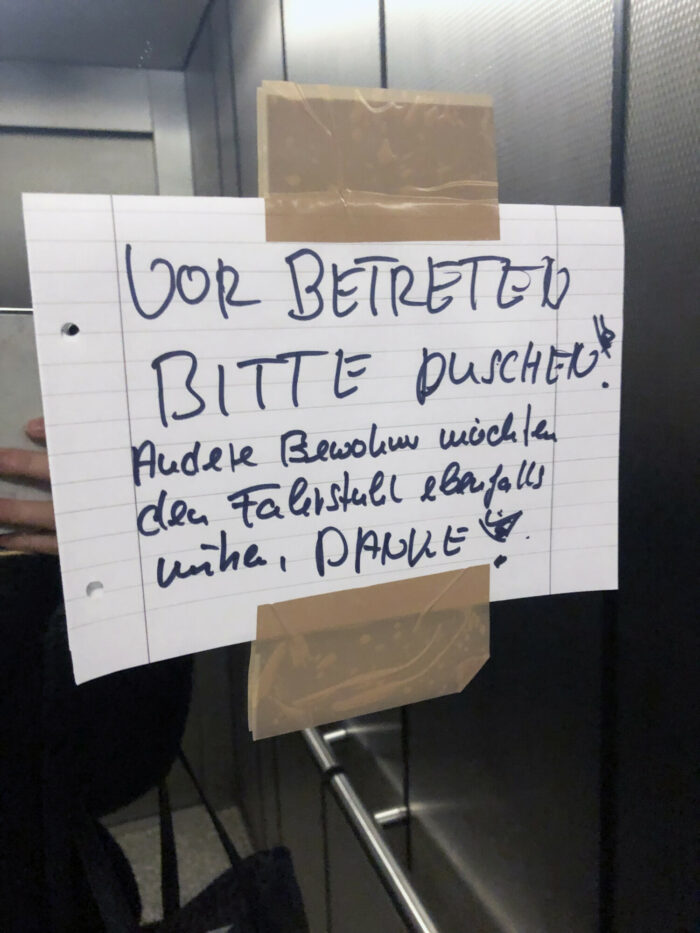 VOR BETRETEN
BITTE DUSCHEN!
Andere Bewohner möchten
den Fahrstuhl ebenfalls
nutzen, DANKE!